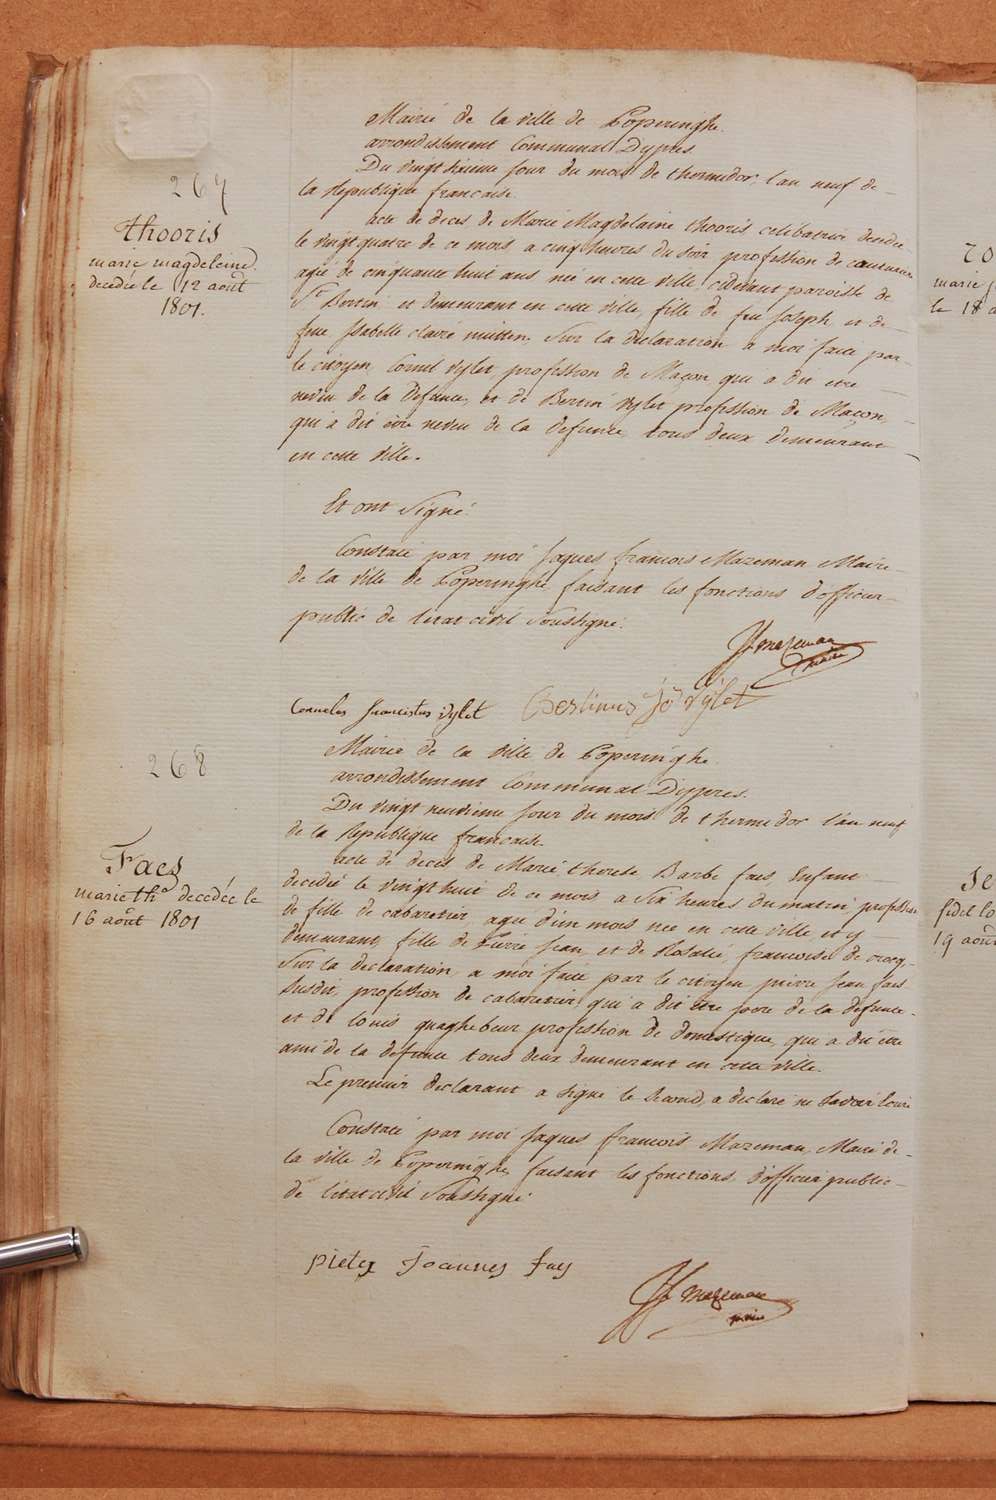 267
thooris
marie magdeleine
decedée le 12 août
1801.
Mairie de la ville de Poperinghe.
arrondissement Communal Dypres
Du vingt sixieme jour du mois de thermidor l'an neuf de
la Republique francaise.
acte de deces de Marie Magdelaine thooris celibatrice decedée
le vingt quatre de ce mois a cinq heures du soir profession de couturiere
agée de cinquante huit ans née en cette ville, cidevant paroisse de
St Bertin et demeurant en cette ville, fille de feu Joseph et de
feue Isabelle claire mutten, Sur la declaration a moi faite par
le citoyen Cornil vylet profession de Maçon qui a dit etre
neveu de la Defunte, et de Bertin vylet profession de Maçon,
qui a dit être neveu de la defunte, tous deux demeurant
en cette ville.
Et ont signé.
Constaté par moi Jaques francois Mazeman Maire
de la ville de Poperinghe faisant les fonctions d'officier
public de l'etat civil Soussigné.
JF mazeman
maire
Cornelis franciscus vylet Bertinus Jos vylet
268
Faes
marie th.a decedée le
16 août 1801
Mairie de la ville de Poperinghe.
arrondissement Communal D'ypres.
Du vingt neuvieme jour du mois de thermidor l'an neuf
de la Republique francaise
acte de deces de Marie therese Barbe faes, Enfant
decedée le vingt huit de ce mois a Six heures du matin profession
de fille de cabaretier agée d'un mois née en cette ville et y
demeurant, fille de Pierre Jean et de Rosalie francoise de crocq,
Sur la declaration a moi faite par le citoyen pierre Jean faes
Susdit, profession de cabaretier qui a dit etre pere de la defunte
et de louis quaghebeur profession de domestique, qui a dit être
ami de la defunte tous deux demeurant en cette ville.
Le premier declarant a signé le Second, a declaré ne savoir Ecrire
Constaté par moi Jaques francois Mazeman, Maire de
la ville de Poperinghe faisant les fonctions d'officier public
de l'etat civil Soussigné
pieter Joannes faes
JF mazeman
maire
marie j
le 18 a
fidel lo
19 août